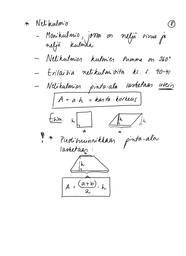 * Nelikulmio
- Monikulmio, jossa on neljä sivua ja
neljä kulmaa
- Nelikulmien kulmien summa on 360°
- Erilaisia nelikulmioita ks. s. 90-91
- Nelikulmien pinta-ala lasketaan usein
A = a·h = kanta·korkeus
h
a
h
h
a
! * Puolisuunnikkaan pinta-ala
lasketaan:
b
h
a
A = (a+b)/2 · h